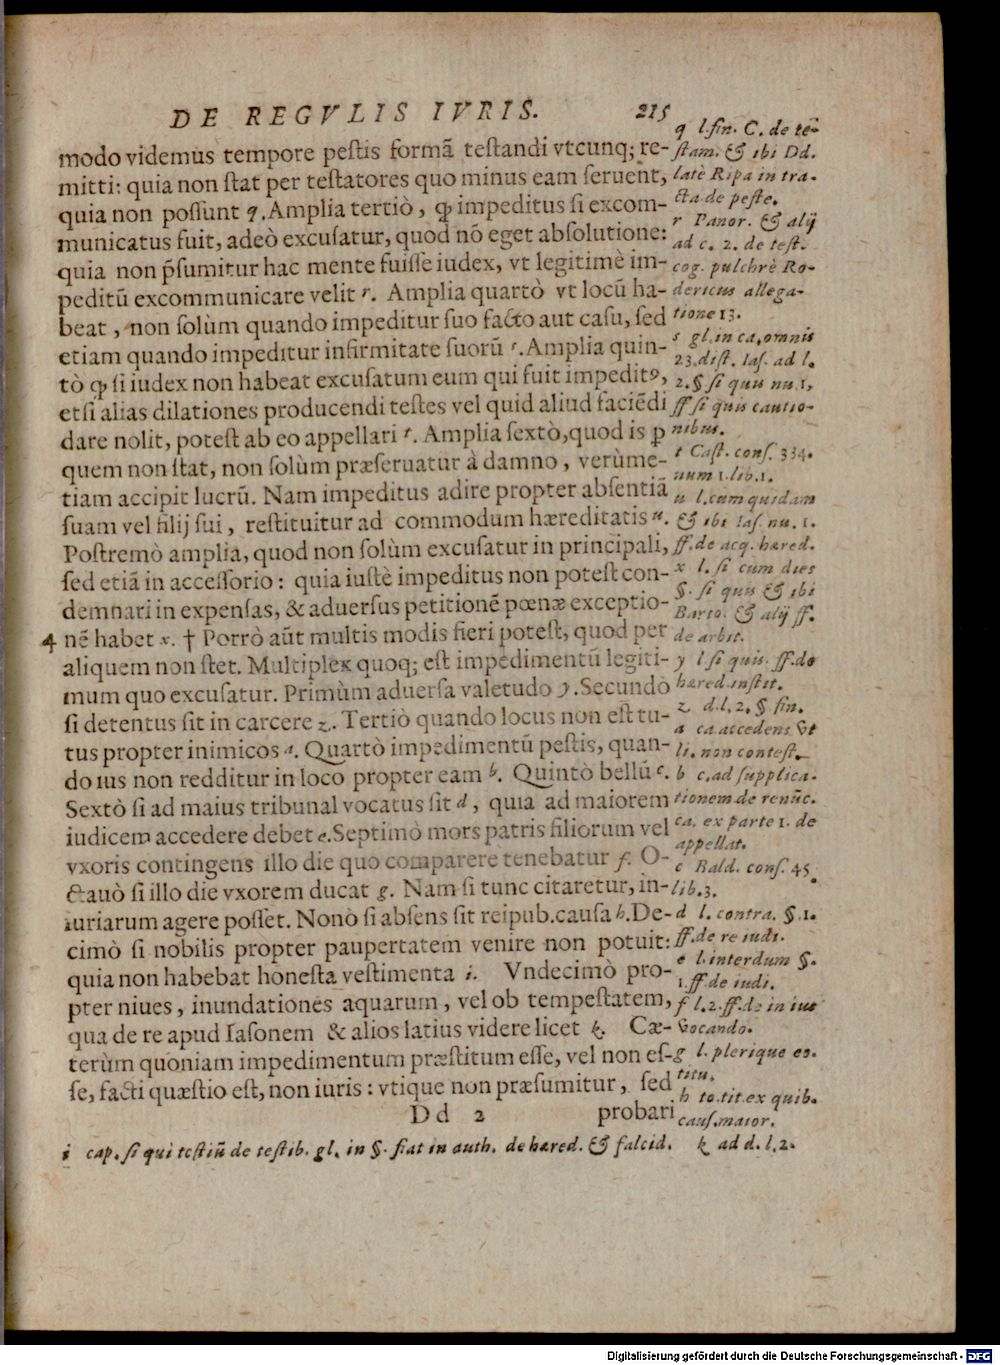 DE REGVLIS IVRIS. 215
modo videmus tempore pestis formã testandi vtcunq; re-
mitti: quia non stat per testatores quo minus eam seruent,
quia non possunt q. Amplia tertiò, ꝙ impeditus si excom-
municatus fuit, adeò excusatur, quod nõ eget absolutione:
quia non p̃sumitur hac mente fuisse iudex, vt legitimè im-
peditũ excommunicare velit r. Amplia quartò vt locũ ha-
beat, non solùm quando impeditur suo facto aut casu, sed
etiam quando impeditur infirmitate suorũ s. Amplia quin-
tò ꝙ si iudex non habeat excusatum eum qui fuit impeditꝰ,
etsi alias dilationes producendi testes vel quid aliud faciẽdi
dare nolit, potest ab eo appellari t. Amplia sextò, quod is ꝑ
quem non stat, non solùm præseruatur à damno, verùme-
tiam accipit lucrũ. Nam impeditus adire propter absentiã
suam vel filij sui, restituitur ad commodum hæreditatis u.
Postremò amplia, quod non solùm excusatur in principali,
sed etiã in accessorio: quia iustè impeditus non potest con-
demnari in expensas, & aduersus petitionẽ pœnæ exceptio-
4 nẽ habet x. † Porrò aũt multis modis fieri potest, quod per
aliquem non stet. Multiplex quoq; est impedimentũ legiti-
mum quo excusatur. Primùm aduersa valetudo y. Secundò
si detentus sit in carcere z. Tertiò quando locus non est tu-
tus propter inimicos a. Quartò impedimentũ pestis, quan-
do ius non redditur in loco propter eam b. Quintò bellũ c.
Sextò si ad maius tribunal vocatus sit d, quia ad maiorem
iudicem accedere debet e. Septimò mors patris filiorum vel
vxoris contingens illo die quo comparere tenebatur f. O-
ctauò si illo die vxorem ducat g. Nam si tunc citaretur, in-
iuriarum agere posset. Nonò si absens sit reipub. causa h. De-
cimò si nobilis propter paupertatem venire non potuit:
quia non habebat honesta vestimenta i. Vndecimò pro-
pter niues, inundationes aquarum, vel ob tempestatem,
qua de re apud Iasonem & alios latius videre licet k. Cæ-
terùm quoniam impedimentum præstitum esse, vel non es-
se, facti quæstio est, non iuris: vtique non præsumitur, sed
Dd 2 probari
q l. fin. C. de te-
stam. & ibi Dd.
latè Ripa in tra-
cta de peste.
r Panor. & alij
ad c. 2. de test.
cog. pulchrè Ro-
dericus allega-
tione 13.
s gl. in ca. omnis
23. dist. Ias. ad l.
2. § si quis nu. 1,
ff si quis cautio-
nibus.
t Cast. cons. 334.
num 1. lib. 1.
u l. cum quidam
& ibi Ias. nu. 1.
ff. de acq. hæred.
x l. si cum dies
§. si quis & ibi
Barto. & alij ff.
de arbit.
y l si quis. ff. de
hæred. instit.
z d. l. 2. § fin.
a ca. accedens vt
li. non contest.
b c. ad supplica-
tionem de renũc.
ca. ex parte 1. de
appellat.
c Bald. cons. 45.
lib. 3.
d l. contra. §. 1.
ff. de re iudi.
e l. interdum §.
1. ff. de iudi.
f l. 2. ff. de in ius
vocando.
g l. plerique eo.
titu.
h to. tit. ex quib.
caus. maior.
i cap. si qui testiũ de testib. gl. in §. fiat in auth. de hæred. & falcid. k ad d. l. 2.
Digitalisierung gefördert durch die Deutsche Forschungsgemeinschaft - DFG